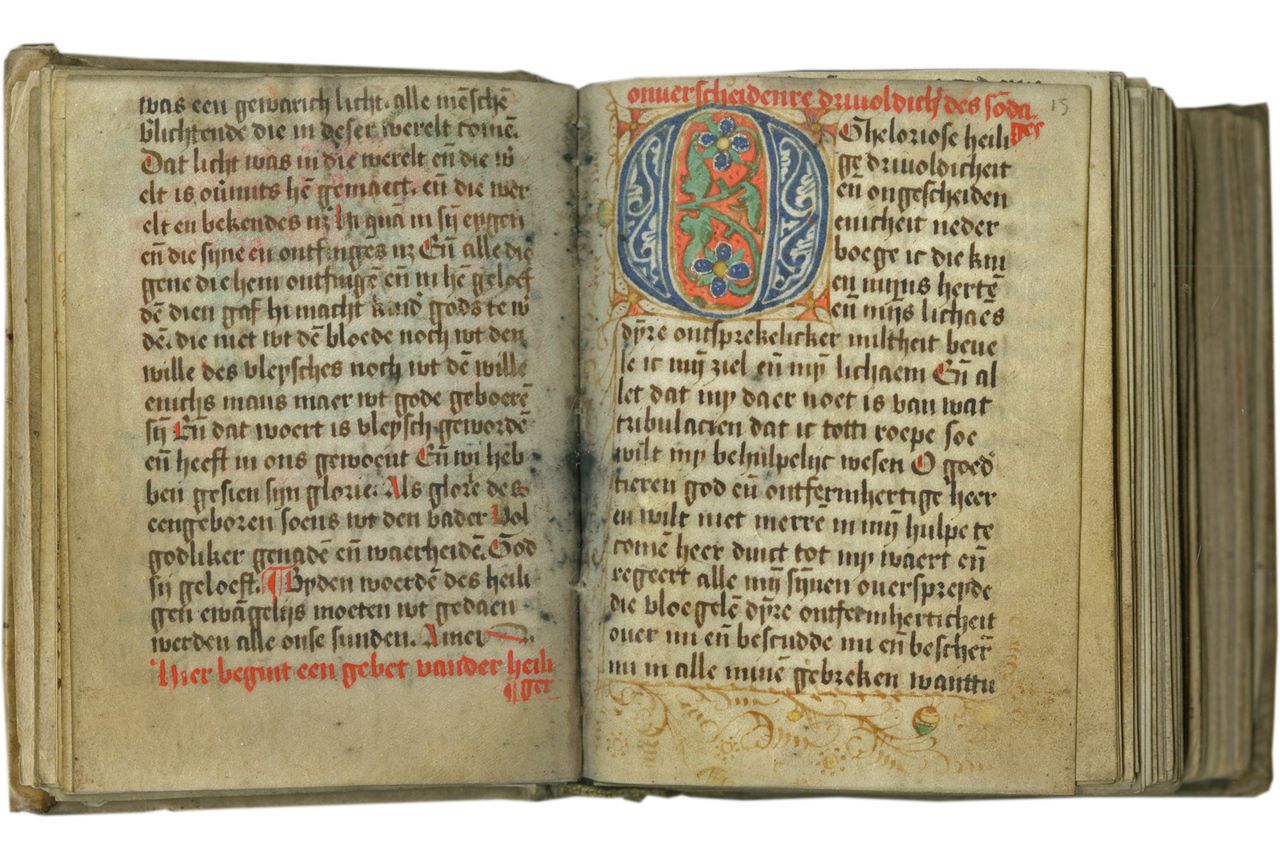 was een gewarich licht. alle mēschē
v̓lichtende die in deser werelt comē.
Dat licht was in die werelt en̄ die w̓
elt is ou̓mits hē gemaect. en̄ die wer
elt en bekendes nz hi quā in sij eygen
en̄ die sijne en ontfinges nz En̄ alle die
gene die hem ontfingē en̄ in hē geloef
dē dien gaf hi macht kind̓ gods te w̓
dē. die niet wt dē bloede noch wt den
wille des vleysches noch wt dē wille
enichs mans maer wt gode geboerē
sij En̄ dat woert is vleysch gewordē
en̄ heeft in ons gewoent En̄ wi heb
ben gesien sijn glorie. Als glorie des
eengeboren soens wt den vader Vol
godliker genadē en̄ waerheidē. God
sij geloeft. ¶ Byden woerdē des heili
gen ewāgelijs moeten wt gedaen
werden alle onse sunden. Amen
Hier begint een gebet vander heili
¶ ger
onuerscheidenre driuoldich̓ des sōda
ges
15
O Gheloriose heili
ge driuoldicheit
en̄ ongescheiden
enicheit neder
boege ic die kni
en mijns hertē
en̄ mijs lichaēs
dijre ontsprekelicker miltheit beue
le ic mij ziel en̄ mij lichaem En̄ al
let dat my daer noet is van wat
tribulacien dat ic totti roepe soe
wilt my behulpelijc wesen O goed̓
tieren god en̄ ontfermhertige heer
en wilt niet merrē in mij hulpe te
comē heer dinct tot my waert en̄
regeert alle mij sijnen ouerspreyde
die vloegelē dijre ontfermherticheit
ouer mi en̄ bescudde mi en̄ bescher̄
mi in alle minē gebreken wanttu